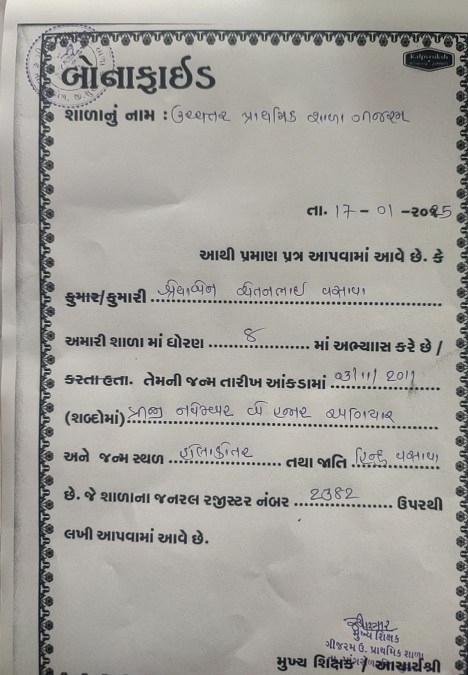 Kalpvruksh
બોનાફાઈડ
શાળાનું નામ : ઉચ્ચતર પ્રાથમિક શાળા ગીજરમ
તા. 17 - 01 -૨૦૨5
આથી પ્રમાણ પત્ર આપવામાં આવે છે. કે
કુમાર/કુમારી ચેતનભાઈ વસાવા
અમારી શાળા માં ધોરણ ૪ માં અભ્યાસ કરે છે /
કરતા હતા. તેમની જન્મ તારીખ આંકડામાં 03/11/2011
(શબ્દોમાં) ત્રીજી નવેમ્બર બે હજાર અગિયાર
અને જન્મ સ્થળ તથા જાતિ હિન્દુ વસાવા
છે. જે શાળાના જનરલ રજીસ્ટર નંબર 2382 ઉપરથી
લખી આપવામાં આવે છે.
મુખ્ય શિક્ષક
ગીજરમ ઉ. પ્રાથમિક શાળા
મુખ્ય શિક્ષક / આચાર્યશ્રી